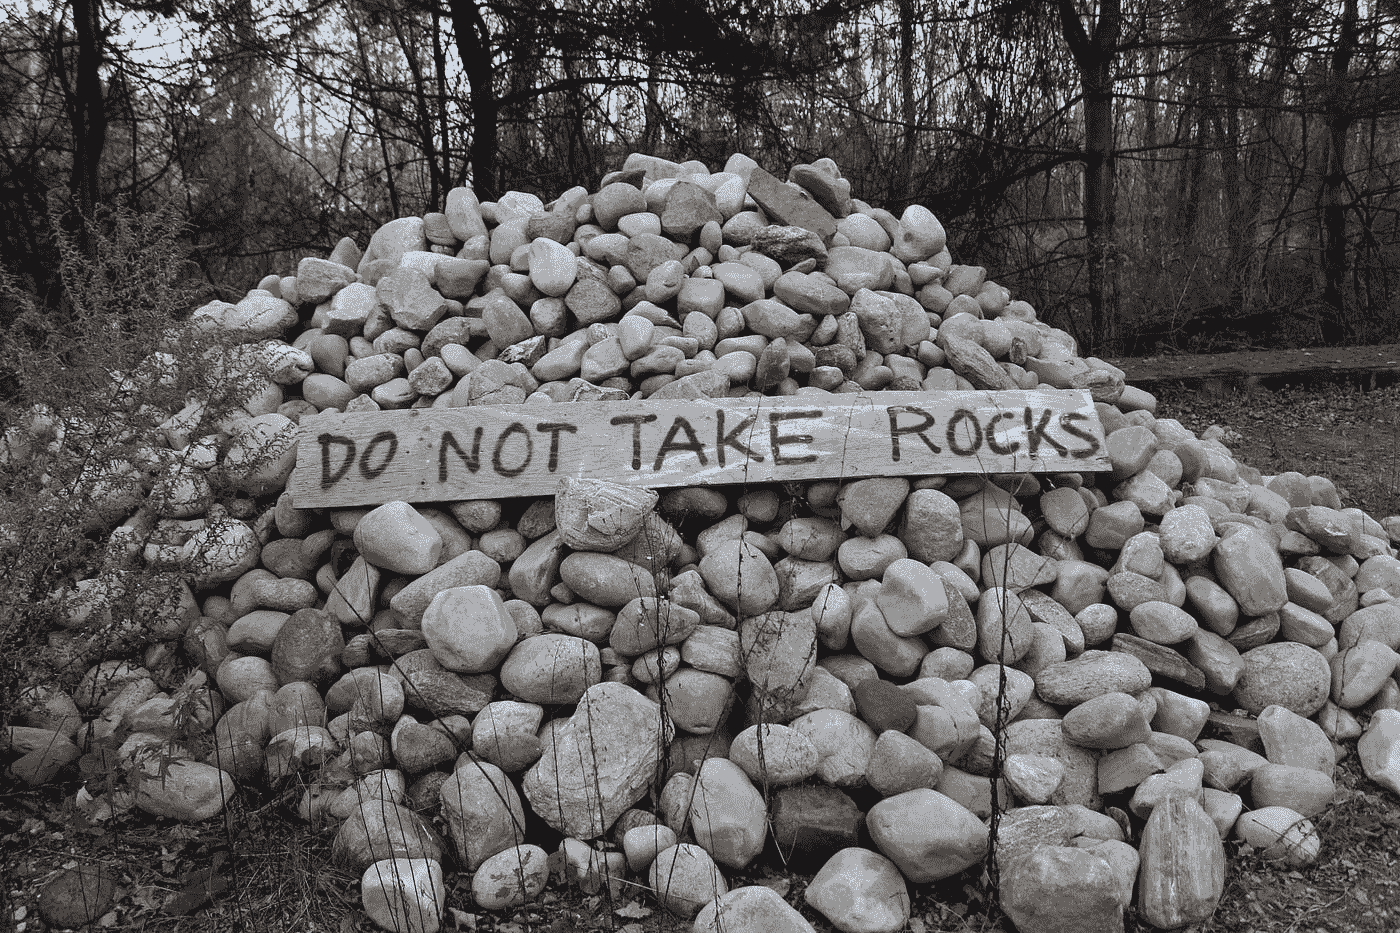 DO NOT TAKE ROCKS